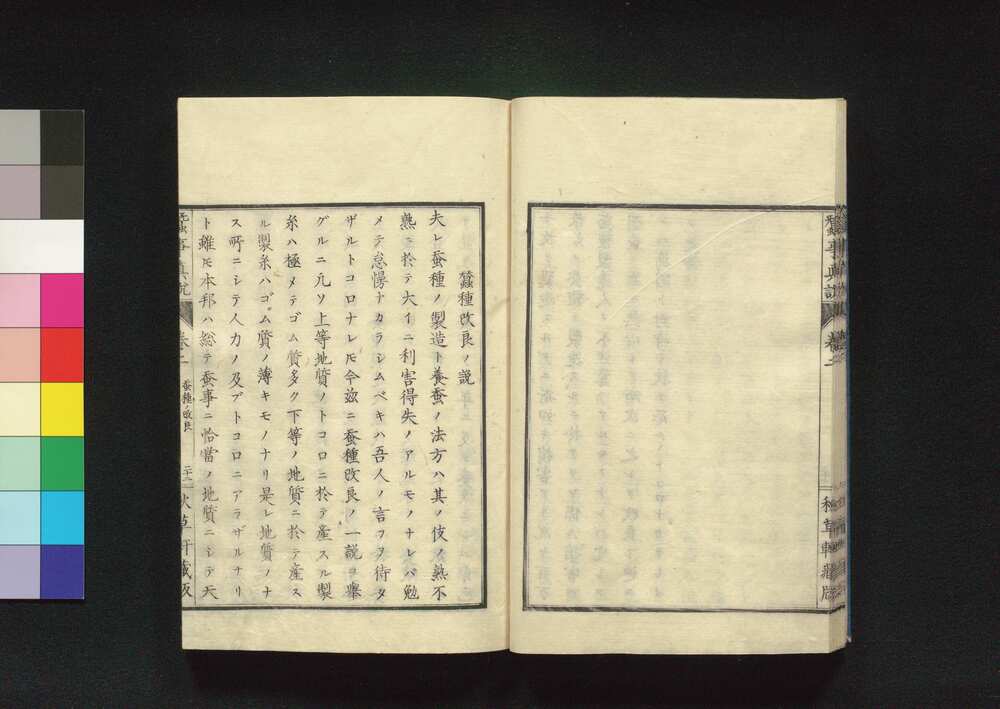 蠶事眞説
卷二
秋草軒藏版
蠶種改良ノ説
夫レ蚕種ノ製造ト養蚕ノ法方ハ其ノ伎ノ熟不
熟ニ於テ大イニ利害得失ノアルモノナレバ勉
メテ怠慢ナカラシムベキハ吾人ノ言フヲ待タ
ザルトコロナレ𪜈今玆ニ蚕種改良ノ一説ヲ擧
グルニ凡ソ上等地質ノトコロニ於テ産スル製
糸ハ極メテゴム質多ク下等ノ地質ニ於テ産ス
ル製糸ハゴム質ノ薄キモノナリ是レ地質ノナ
ス所ニシテ人力ノ及ブトコロニアラザルナリ
ト雖𪜈本邦ハ総テ蚕事ニ恰當ノ地質ニシテ天
蠶事眞説
卷二
蚕種ノ改良
二十二
秋草軒藏版